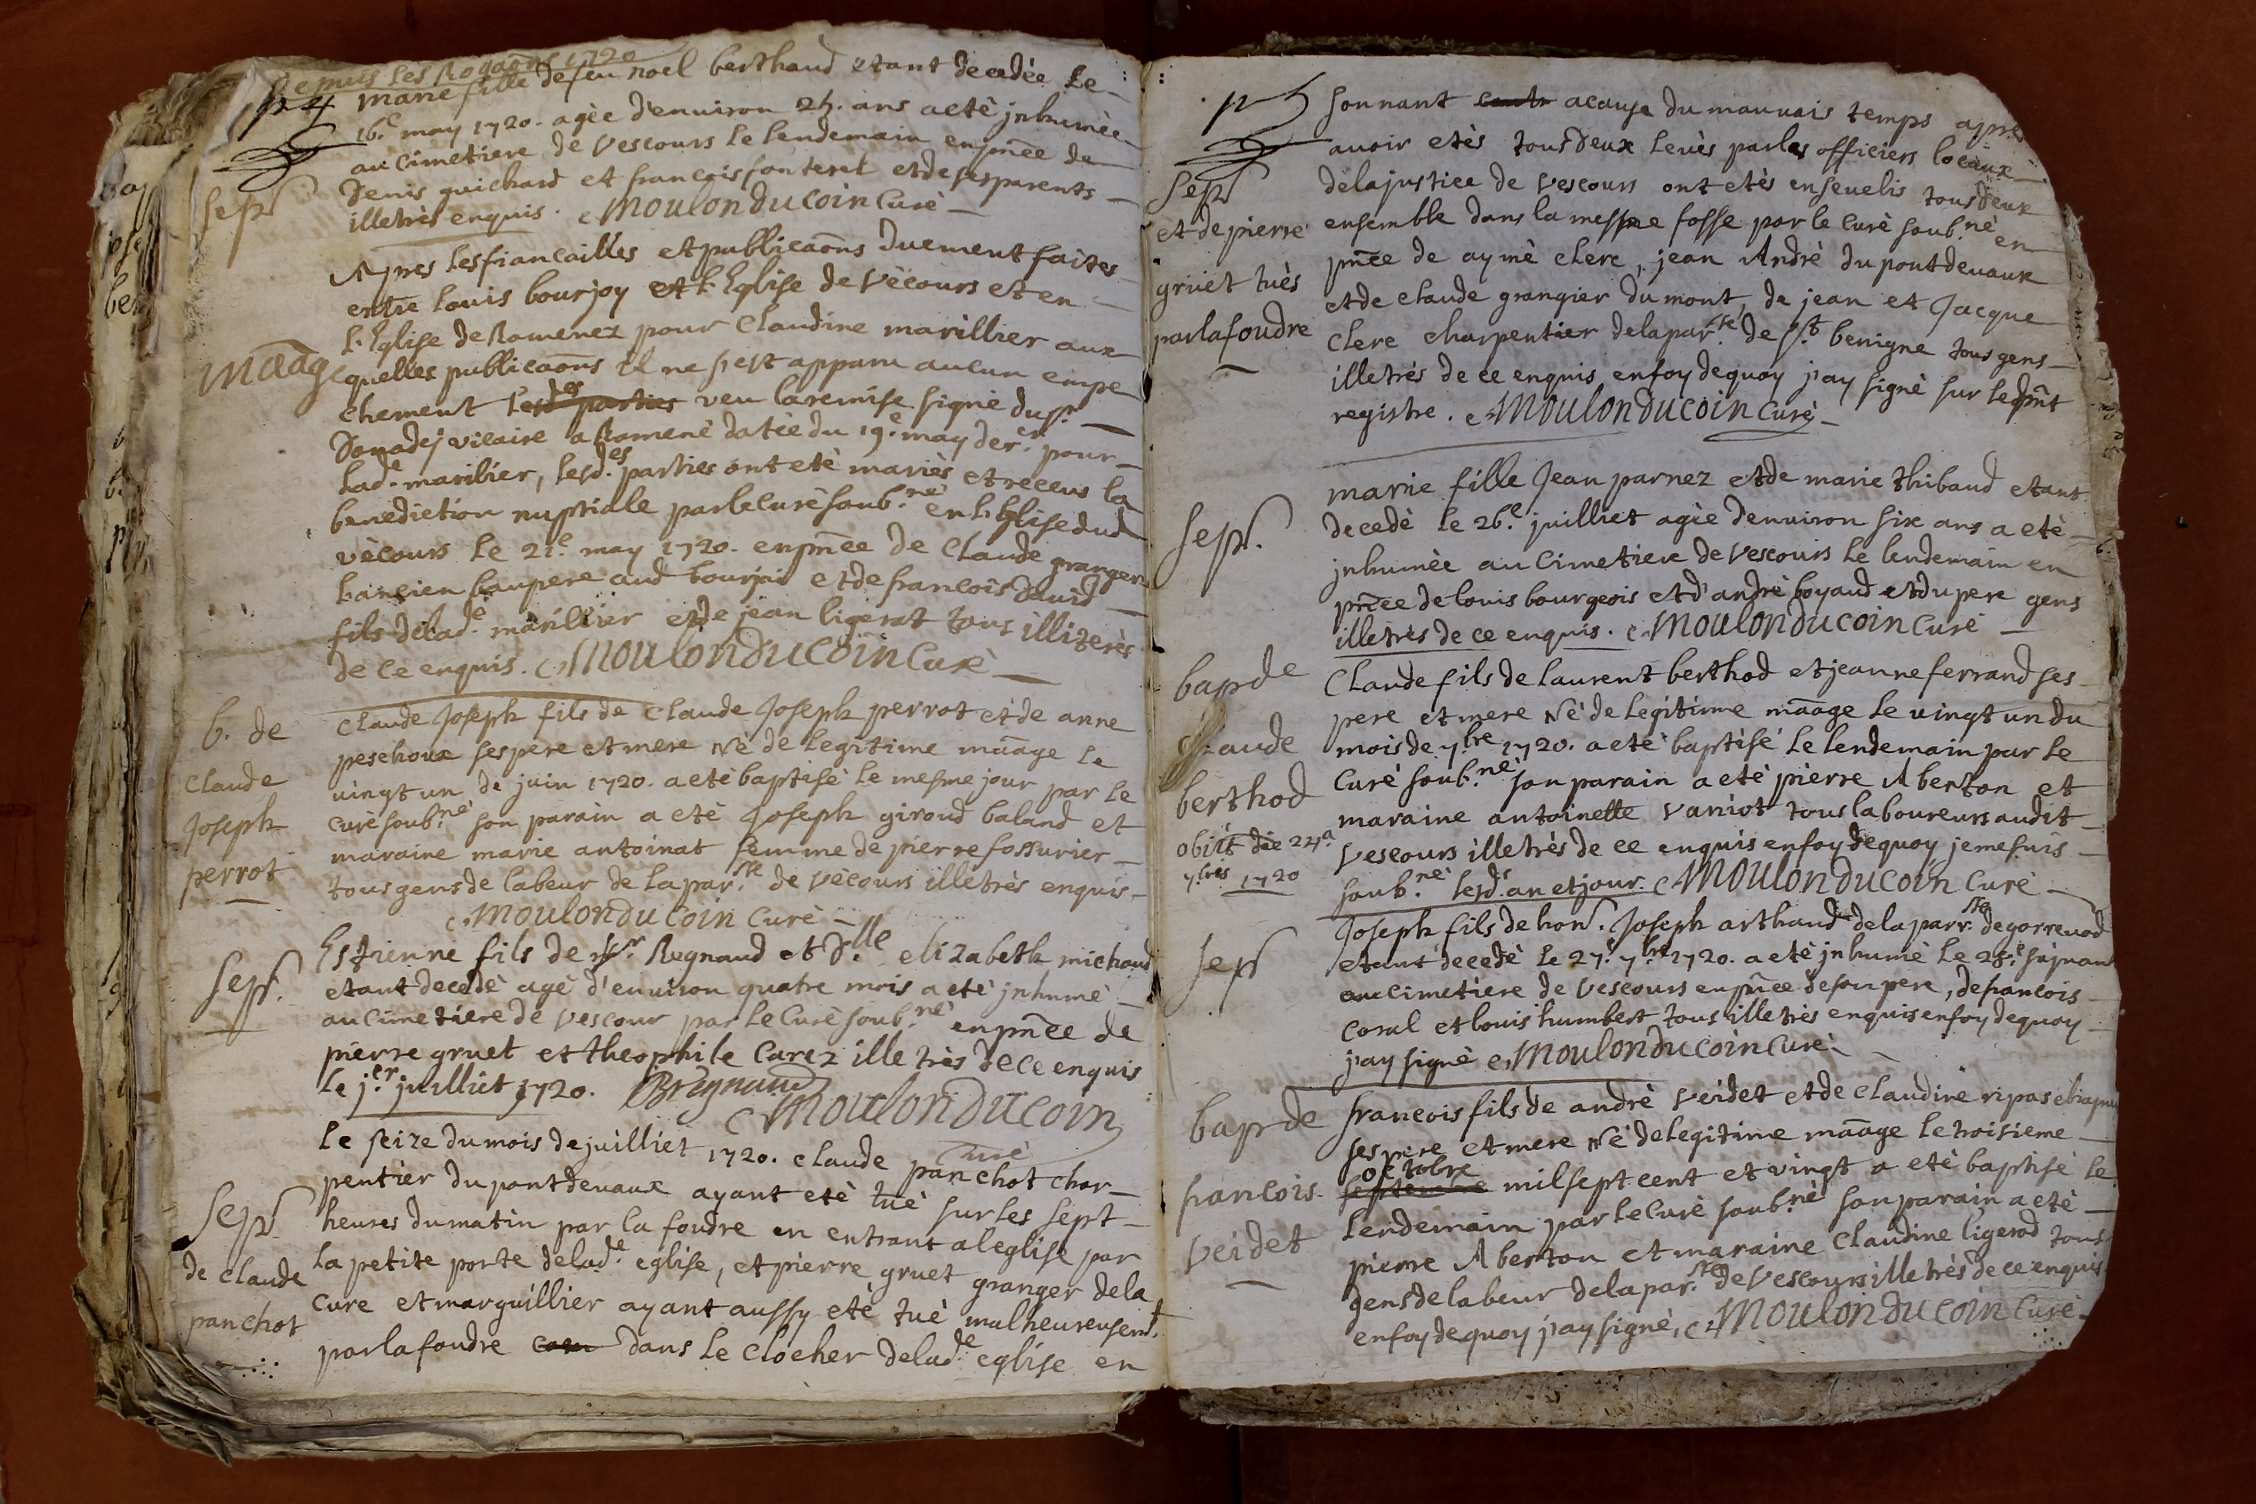 Depuis les Rogaõns 1720
p 4 marie fille de feu noel berthaud etant decedèe Le
16.e may 1720. agèe denuiron 25. ans a etè jnhumèe
au Cimetiere de Vescours le lendemain en pñce de
Sep.r
Denis guichard et francois fonteret et de ses parents
illetrès enquis. Moulonducoin Curè
Apres les fiancailles et publicaõns Duement faites
entre louis bourjoy et L'Eglise de Vècours et en
L'Eglise de Romenez pour Claudine marillier aux
Mãage
quelles publicaõns il ne s'est apparu aucun empe
chement lesd.es parties veu la remise signè du s.r
Donadej vicaire a Romenè datèe du 19.e may der.er pour
lad.e marilier, lesd.es parties ont etè mariès et receus la
benediction nuptialle par le Curè soub.nè en L'Eglise dud
vècours le 21.e may 1720. en pñce de Claude granger
L'ancien baupere aud bourjai et de francois David
fils de lad.e marillier et de jean ligerot tous illiterès
de ce enquis. Moulonducoin Curè
b. de
Claude
Joseph
perrot
Claude Joseph fils de Claude Joseph perrot et de anne
peschoux ses pere et mere Nè de Legitime mãage Le
vingt un de juin 1720. a etè baptisè le mesme jour par Le
Curè soub.nè son parain a etè Joseph giroud baland et
maraine marie antoinat femme de pierre fossurier
tous gens de labeur de la par.sse de Vècours illetrès enquis
Moulonducoin Curè
Sep.r
Estienne fils de Sr. Regnaud et D.lle elizabeth michaud
etant decedè agè d'enuiron quatre mois a etè jnhumè
au Cimetiere de Vescour par le Curè soub.nè en pñce de
pierre gruet et theophile Carez illetrès de ce enquis
le j.er juilliet 1720. BRegnaud
Moulonducoin
Curè
Sep.r
de Claude
panchot
Le seize du mois de juilliet 1720. claude panchot char
pentier du pontdevaux ayant etè tuè sur les sept
heures du matin par la foudre en entrant a leglise par
La petite porte de lad.e eglise, et pierre gruet granger de la
Cure et marguillier ayant aussy etè tuè malheureusem.t
par la foudre dans le Clocher de lad.e eglise en
p 5 sonnant a cause du mauvais temps apres
auoir etès tous deux leuès par les officiers locaux
Sep.r
et de pierre
gruet tuès
par la foudre
de la justice de Vescours ont etès enseuelis tous deux
ensemble dans la mesme fosse par le Curè soub.nè en
pñce de aymè clerc, jean Andrè du pontdeuaux
et de Claude grangier dumont, de jean et Jacque
Clerc charpentier de la par.sse de S.t benigne tous gens
illetrés de ce enquis en foy de quoy j'ay signè sur le dpñt
registre. Moulonducoin Curè
Sep.r
marie fille Jean parnez et de marie thibaud etant
decedè le 26.e juilliet agèe denuiron six ans a etè
jnhumèe au Cimetiere de Vescours le lendemain en
pñce de louis bourgeois et d'andrè boyaud et du pere gens
illetrès de ce enquis. Moulonducoin Curè
bap de
Claude
berthod
obiit die 24a
7.bris 1720
Claude fils de Laurent berthod et jeanne ferrand ses
pere et mere Nè de Legitime mãage Le vingt un du
mois de 7.bre 1720. a etè baptisé Le lendemain par Le
Curé soub.nè son parain a etè pierre Aberton et
maraine antoinette Variot tous laboureurs audit
Vescours illetrès de ce enquis en foy de quoy je me suis
soub.nè lesd.s an et jour. Moulonducoin Curè
Sep.r
Joseph fils de hon.r Joseph arthaud de la parr.sse de gorrevod
etant decedè le 27.e 7.bre 1720. a etè jnhumè le 28.e sujuant
au Cimetiere de Vescours en pñce de son pere, de francois
Coral et louis humbert tous illetrès enquis en foy de quoy
j'ay signè Moulonducoin Curè
bap de
francois
Veidet
francois fils de andrè Veidet et de Claudine ripas
ses pere et mere Nè de legitime mãage le troisieme
octobre
septembre mil sept cent et vingt a etè baptisè le
lendemain par le Curè soub.nè son parain a etè
pierre Aberton et maraine Claudine ligerod tous
gens de labeur de la par.sse de Vescours illetrès de ce enquis
en foy de quoy j'ay signè, Moulonducoin Curè